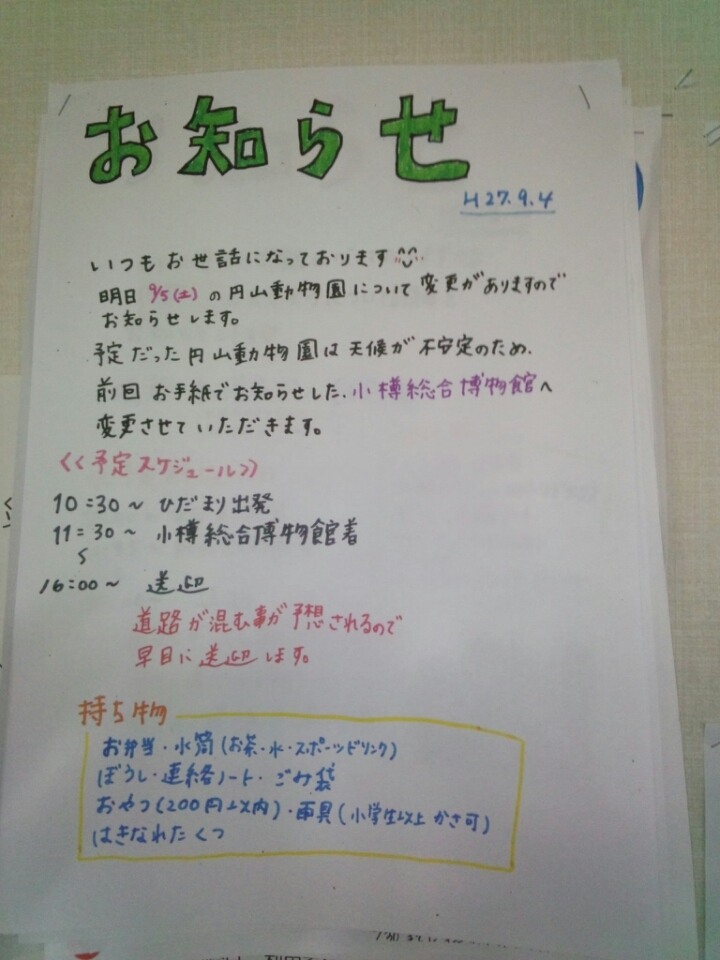 お知らせ
H27.9.4
いつもお世話になっております
明日9/5(土)の円山動物園について変更がありますので
お知らせします。
予定だった円山動物園は天候が不安定のため、
前回お手紙でお知らせした、小樽総合博物館へ
変更させていただきます。
《予定スケジュール》
10:30～ ひだまり出発
11:30～ 小樽総合博物館着
16:00～ 送迎
道路が混む事が予想されるので
早目に送迎します。
持ち物
お弁当・水筒(お茶・水・スポーツドリンク)
ぼうし・連絡ノート・ごみ袋
おやつ(200円以内)・雨具(小学生以上かさ可)
はきなれたくつ